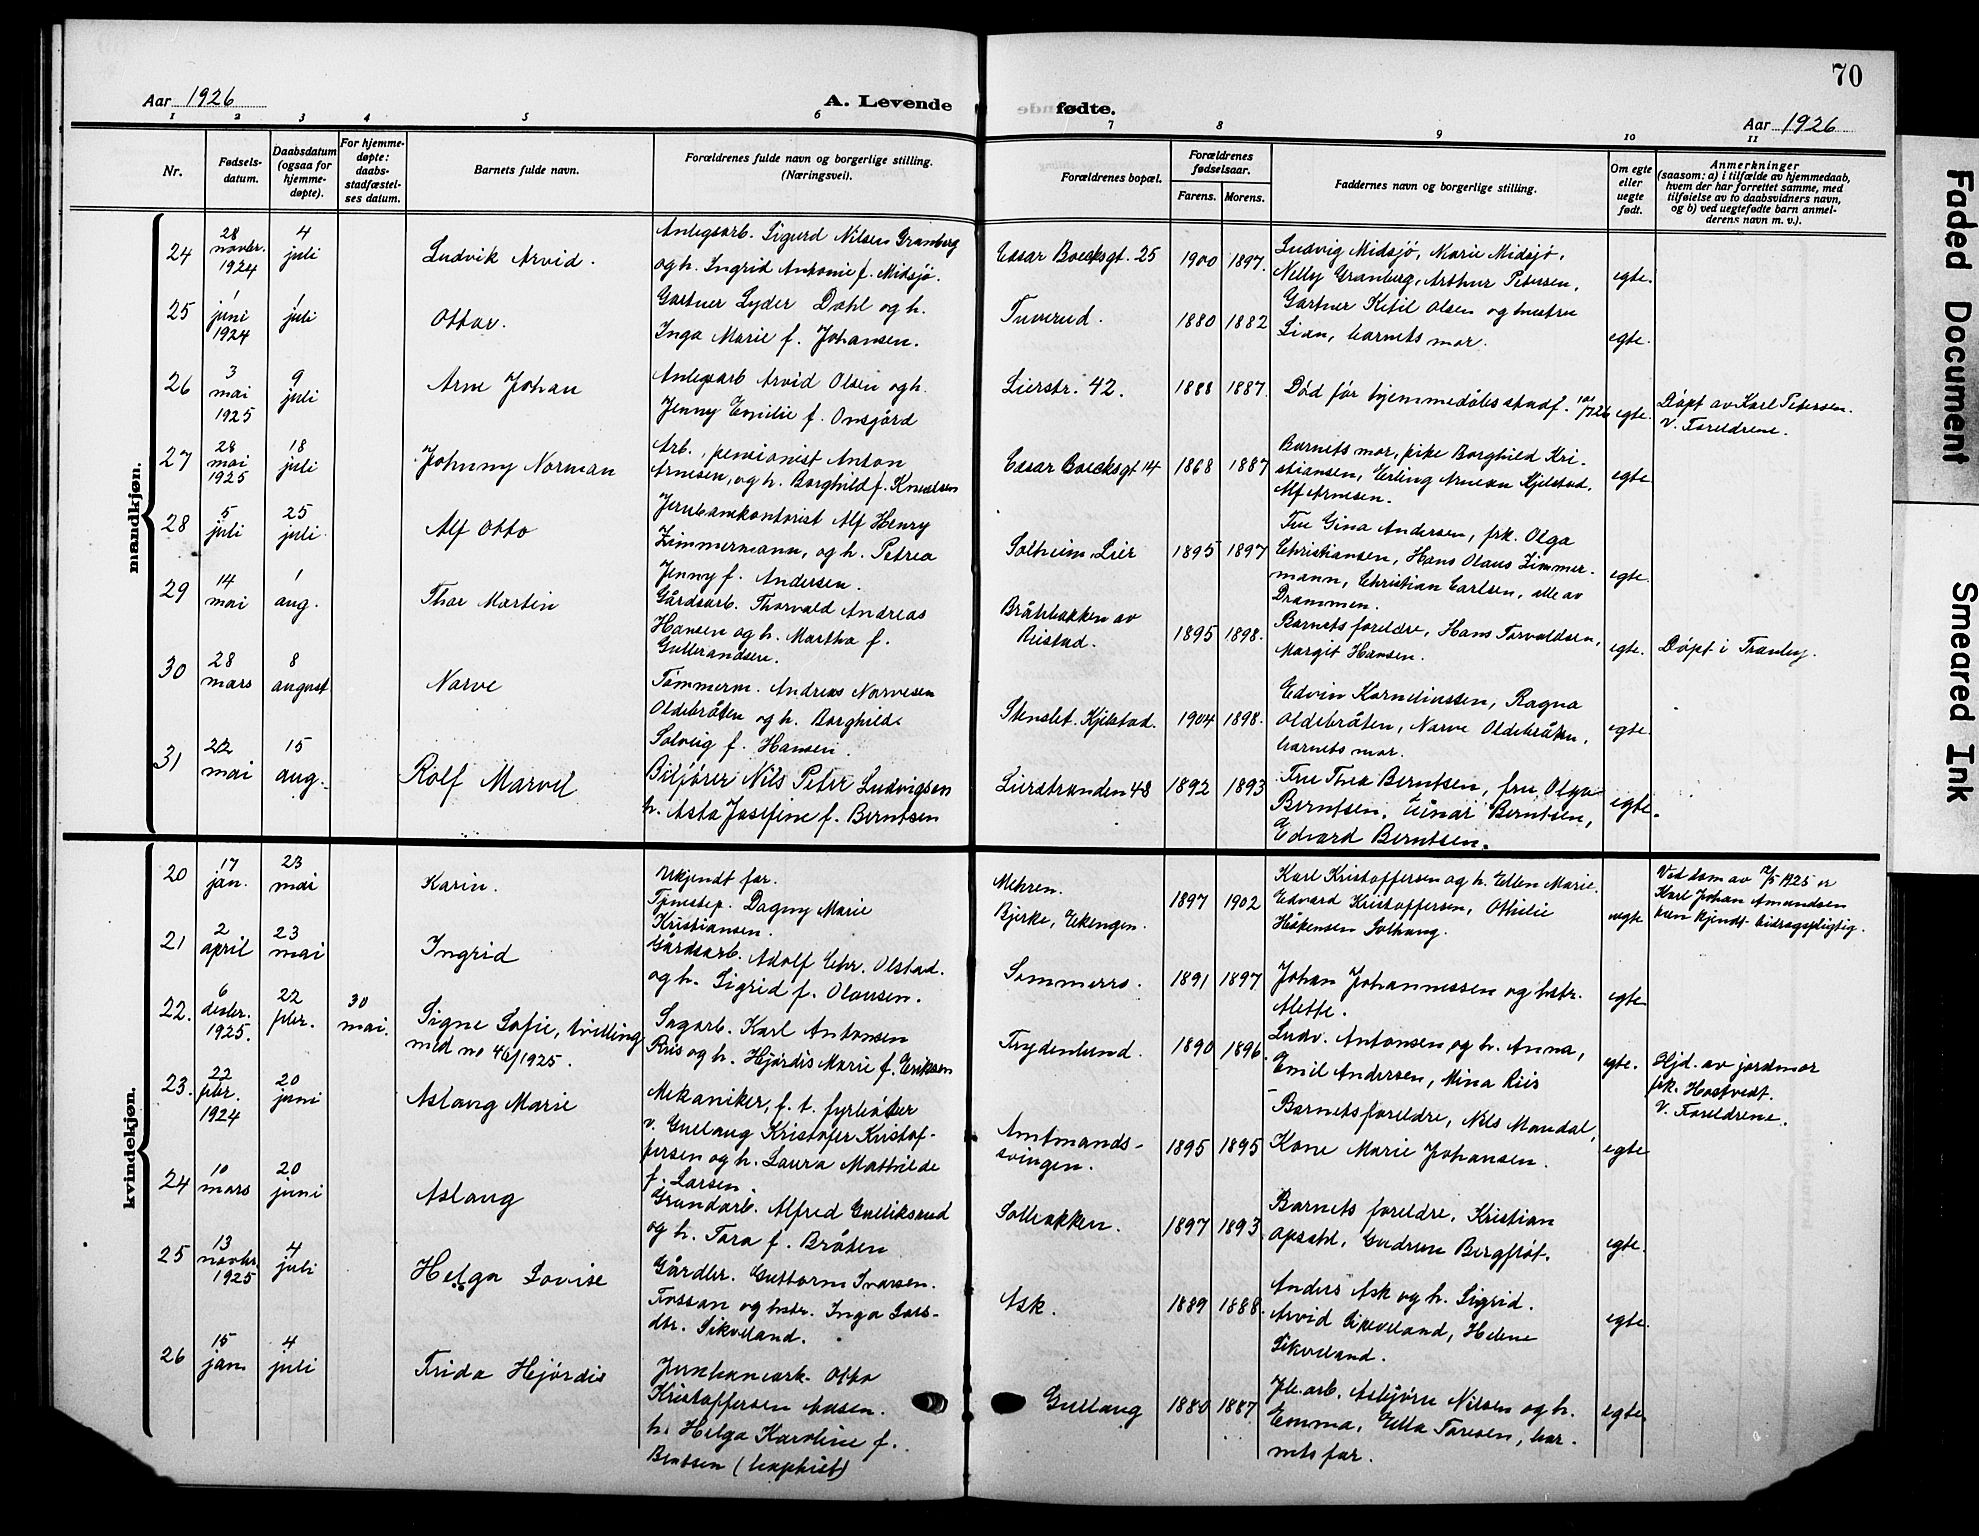 70
Aar 1926
A. Levende
fødte.
Aar 1926
1 2 3 4 5 6 7 8 9 10 11
Nr.
Fødsels-
datum.
Daabsdatum
(ogsaa for
hjemme-
døpte).
For hjemme-
døpte:
daabs-
stadfæstel-
ses datum.
Barnets fulde navn.
Forældrenes fulde navn og borgerlige stilling.
(Næringsvei).
Forældrenes bopæl.
Forældrenes
fødselsaar.
Farens. Morens.
Faddernes navn og borgerlige stilling.
Om egte
eller
uegte
født.
Anmerkninger
(saasom: a) i tilfælde av hjemmedaab,
hvem der har forrettet samme, med
tilføielse av to daabsvidners navn,
og b) ved uegtefødte barn anmel-
derens navn m. v.).
mandkjøn.
24
28
novbr.
1924
4
juli
Ludvik Arvid.
Anlegsarb. Sigurd Nilsen Granberg
og h. Ingrid Antonie f. Midsjø.
Cesar Boecksgt. 25
1900 1897.
Ludvig Midsjø, Marie Midsjø,
Nelly Granberg, Arthur Petersen.
egte.
25
1
juni
1924
1
juli
Ottar.
Gartner Lyder Dahl og h.
Inga Marie f. Johansen.
Tuverud.
1880 1882
Gartner Ketil Olsen og hustru
Lian, barnets mor.
egte.
26
3
mai
1925
9
juli
Arne Johan
Anlegsarb Arvid Olsen og h.
Jenny Emilie f. Onsjørd
Lierstr. 42.
1888 1887.
Død før hjemmedåbs stadf.
egte.
Døpt av Karl Petersen.
V. Foreldrene.
27
28
mai
1925
18
juli
Johnny Norman
Arb., pensionist Anton
Arnesen, og h. Borghild f. Knudsen
Cesar Boecksgt 14
1868 1887
Barnets mor, pike Borghild Kri-
stiansen, Erling Arnesen Kjelstad,
Alf Arnesen.
egte
28
5
juli
25
juli.
Alf Otto
Jernbanekontorist Alf Henry
Zimmermann, og h. Petrea
Jenny f. Andersen.
Solheim, Lier
1895 1897
Fru Gina Andersen, frk. Olga
Christiansen, Hans Olaus Zimmer-
mann, Christian Carlsen, alle av
Drammen.
egte.
29
14
mai
1
aug.
Thor Martin
Gårdsarb. Thorvald Andreas
Hansen og h. Martha f.
Gulbrandsen.
Bråtebakken av
Reistad.
1895 1898.
Barnets foreldre, Hans Torvaldsen,
Margit Hansen.
egte.
Døpt i Tranby.
30
28
mars
8
august
Narve
Tømmerm. Andreas Narvesen
Oldebråten og h. Borghild
Solveig f. Hansen.
Stenslet. Kjelstad.
1904 1898.
Edvin Korneliussen, Ragna
Oldebråten, Narve Oldebråten,
barnets mor.
egte.
31
22
mai
15
aug.
Rolf Marvel
Biljører Nils Peter Ludvigsen
h. Asta Josefine f. Berntsen
Lierstranden 48
1892 1893
Fru Thea Berntsen, fru Olga
Berntsen, Einar Berntsen,
Edvard Berntsen.
egte.
kvindekjøn.
20
17
jan.
23
mai
Karin.
Ukjendt far.
Tjenestep. Dagny Marie
Kristiansen.
Mehren.
Bjerke, Eikengen.
1897 1902
Karl Kristoffersen og h. Ellen Marie.
Edvard Kristoffersen, Othilie
Håkensen Solhaug.
uegte
Ved dom av 12/5 1925 er
Karl Johan Amundsen
kun kjendt bidragspligtig.
21
2
april
23
mai
Ingrid
Gårdsarb. Adolf Chr. Olstad.
og h. Sigrid f. Olausen.
Sommerro.
1891 1897
Johan Johannessen og hstr.
Alette.
egte
22.
6
desbr.
1925.
22
febr.
30
mai.
Signe Sofie, tvilling
med no 46/1925.
Sagarb. Karl Antonsen
Riis og h. Hjørdis Marie f. Eriksen
Frydenlund.
1890 1896
Ludv. Antonsen og h. Anna,
Emil Andersen, Mina Riis
egte.
Hjd. av jordmor
frk. Hostvedt.
V. Foreldrene.
23.
22
febr.
1924
20
juni
Aslaug Marie
Mekaniker, f. t. fyrbøter
v. Gullaug Kristofer Kristof-
fersen og h. Laura Mathilde
f. Larsen.
Amtmands-
svingen.
1895 1895
Barnets foreldre, Nils Mandal,
Kone Marie Johansen.
egte
24
10
mars
20
juni
Aslaug
Grundarb. Alfred Gulliksrud
og h. Tora f. Bråten
Solbakken.
1897 1893
Barnets foreldre, Kristian
Opsahl, Gudrun Bergfløt.
egte.
25
13
novbr.
1925
4
juli
Helga Lovise
Gårdbr. Guttorm Ivarsen.
Fossan og hstr. Inga Lars-
dtr. Sikveland.
Ask.
1889 1888.
Anders Ask og h. Sigrid.
Arvid Sikveland, Helene
Sikveland.
egte.
26
15
jan.
4
juli
Frida Hejørdis
Jernbanearb. Otto
Kristoffersen Aasen.
h. Helga Karoline f.
Bentsen (baptist)
Gullaug
1880 1887
Jb. arb. Asbjørn Nilsen og h.
Emma, Ella Toresen, bar-
nets far.
egte
Faded Document
Smeared Ink